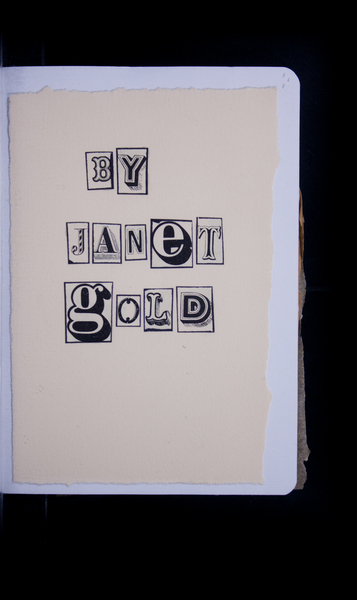 BY
JANeT
gOLD